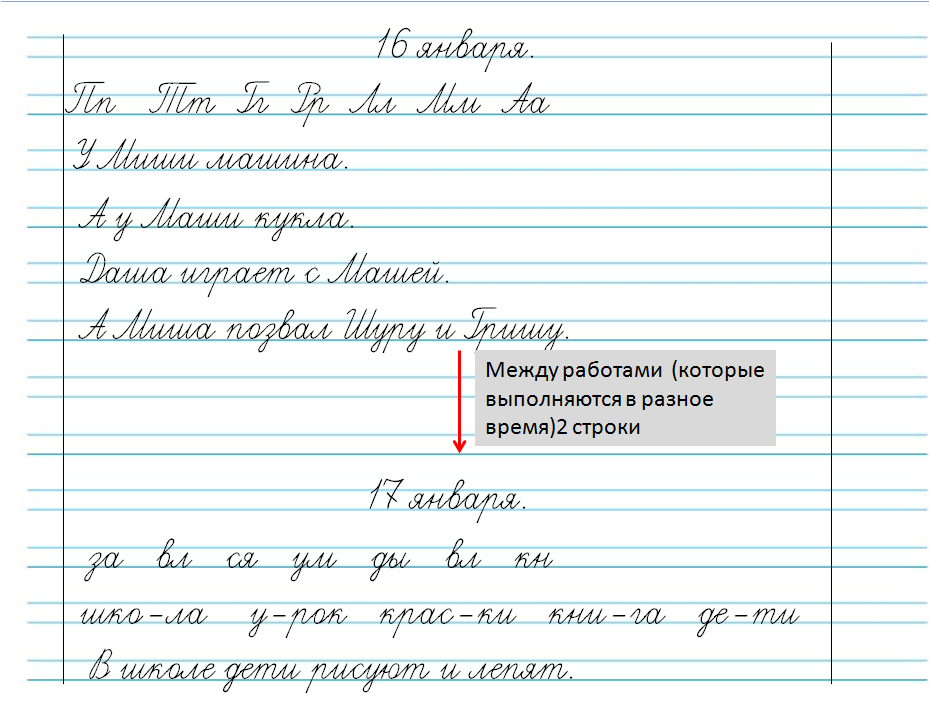 16 января.
Пп Тт Гг Рр Лл Мм Аа
У Миши машина.
А у Маши кукла.
Даша играет с Машей.
А Миша позвал Шуру и Гришу.
Между работами (которые
выполняются в разное
время)2 строки
17 января.
за вл ся ум ды вл кн
шко-ла у-рок крас-ки кни-га де-ти
В школе дети рисуют и лепят.